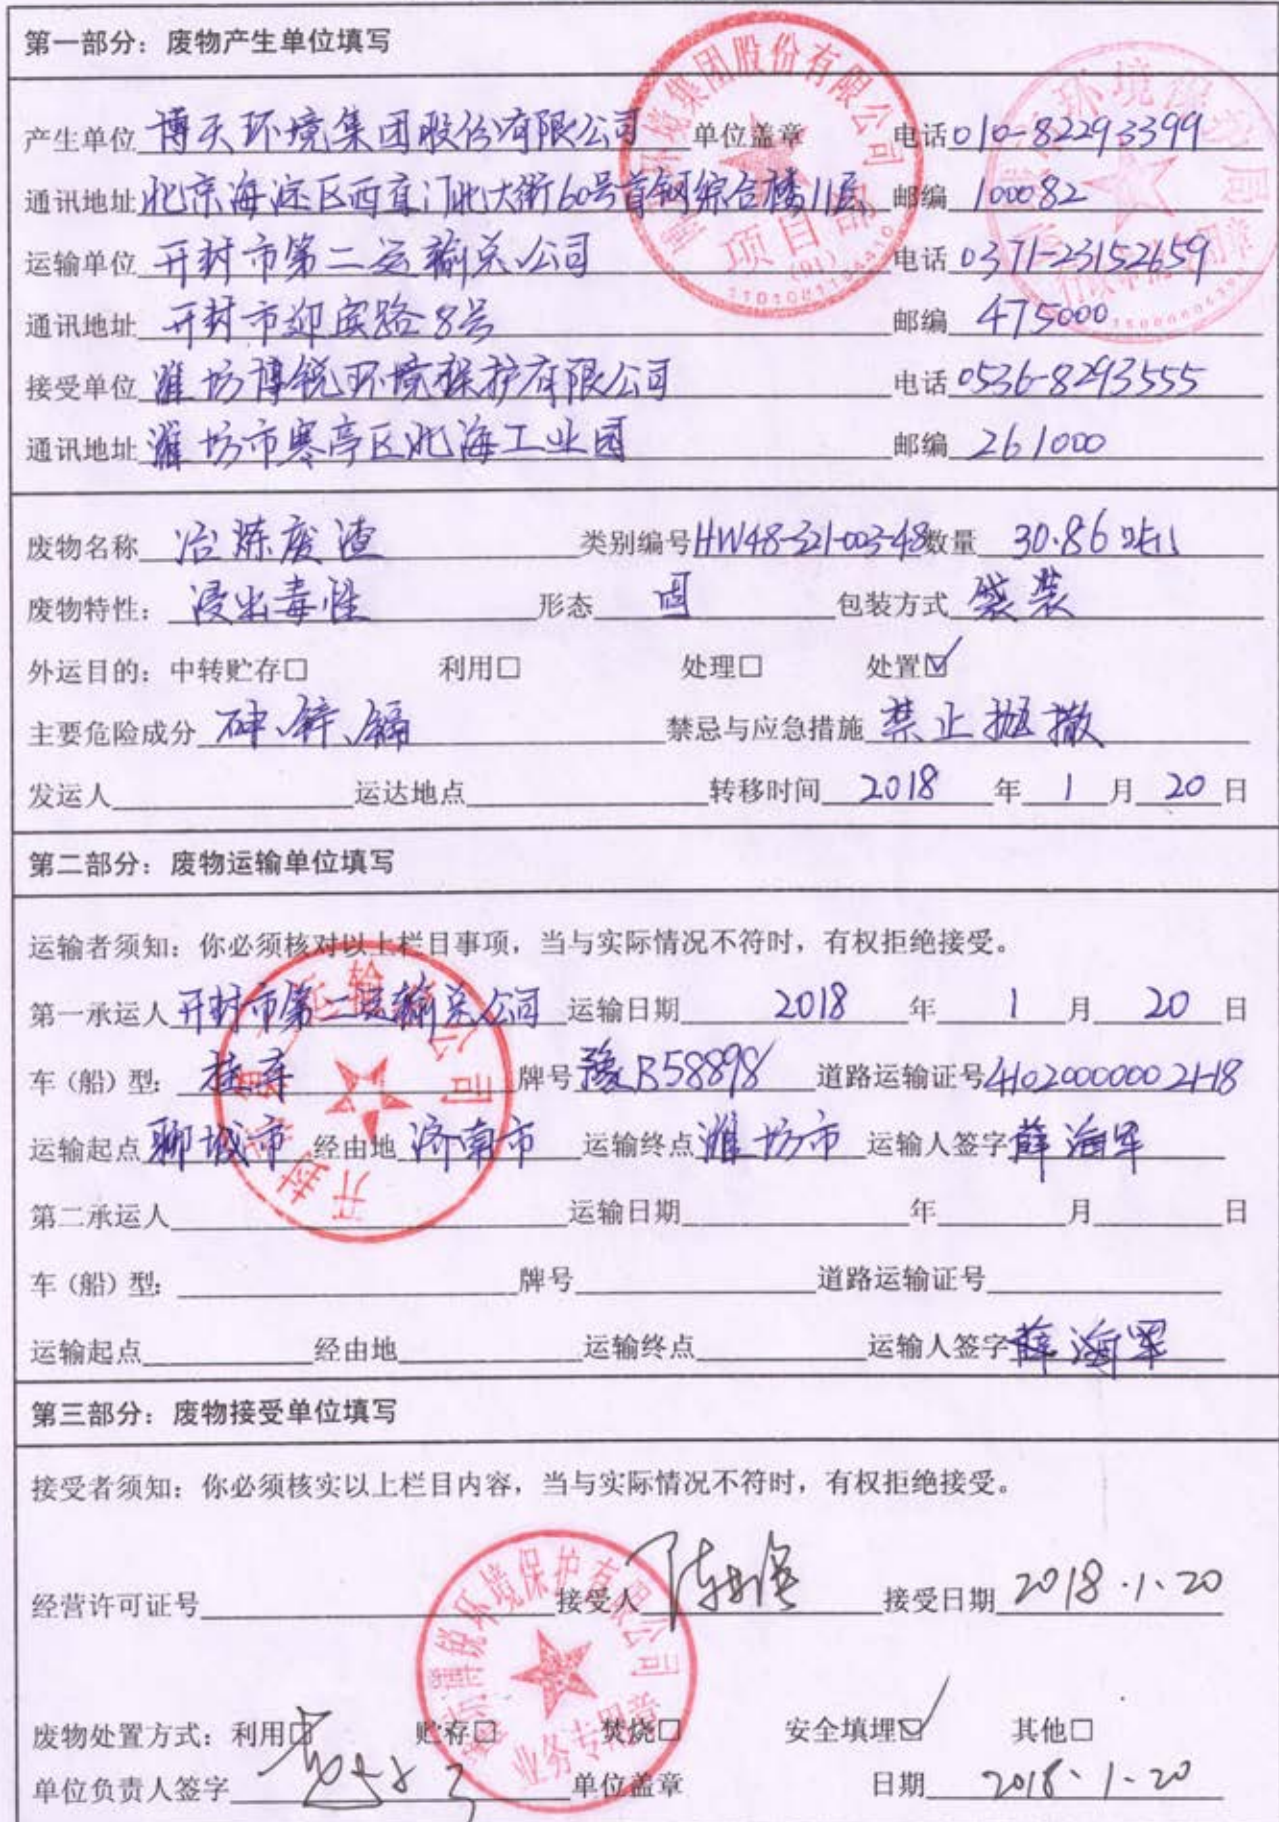 第一部分：废物产生单位填写
产生单位 博天环境集团股份有限公司 单位盖章 电话 010-82293399
通讯地址 北京海淀区西直门北大街60号首钢综合楼11层 邮编 100082
运输单位 开封市第二运输总公司 电话 0371-23152659
通讯地址 开封市迎宾路8号 邮编 475000
接受单位 潍坊博锐环境保护有限公司 电话 0536-8293555
通讯地址 潍坊市寒亭区北海工业园 邮编 261000
废物名称 冶炼废渣 类别编号 HW48-321-003-48 数量 30.86吨
废物特性： 浸出毒性 形态 固 包装方式 袋装
外运目的：中转贮存□ 利用□ 处理□ 处置☑
主要危险成分 砷、锌、镉 禁忌与应急措施 禁止抛撒
发运人 运达地点 转移时间 2018 年 1 月 20 日
第二部分：废物运输单位填写
运输者须知：你必须核对以上栏目事项，当与实际情况不符时，有权拒绝接受。
第一承运人 开封市第二运输总公司 运输日期 2018 年 1 月 20 日
车（船）型： 牌号 豫B58898 道路运输证号
运输起点 聊城市 经由地 济南市 运输终点 潍坊市 运输人签字 薛海军
第二承运人 运输日期 年 月 日
车（船）型： 牌号 道路运输证号
运输起点 经由地 运输终点 运输人签字 薛海军
第三部分：废物接受单位填写
接受者须知：你必须核实以上栏目内容，当与实际情况不符时，有权拒绝接受。
经营许可证号 接受人 接受日期 2018.1.20
废物处置方式：利用□ 贮存□ 焚烧□ 安全填埋☑ 其他□
单位负责人签字 单位盖章 日期 2018.1.20
项目部
(01)
开封市第二运输总公司
潍坊博锐环境保护有限公司
业务专用章